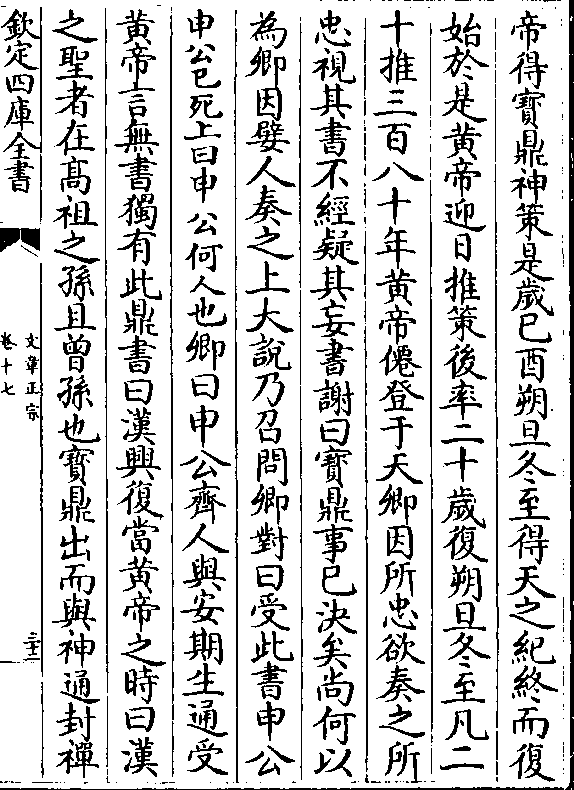 帝得寶鼎神策是歲己酉朔旦冬至得天之紀終而復
始於是黄帝迎日推策後率二十歲復朔旦冬至凡二
十推三百八十年黄帝僊登于天卿因所忠欲奏之所
忠視其書不經疑其妄書謝曰寶鼎事已決矣尚何以
為卿因嬖人奏之上大說乃召問卿對曰受此書申公
申公已死上曰申公何人也卿曰申公齊人與安期生通受
黄帝言無書獨有此鼎書曰漢興復當黄帝之時曰漢
之聖者在髙祖之孫且曾孫也寶鼎出而與神通封禪
欽定四庫全書
文章正宗
卷十七
三十二